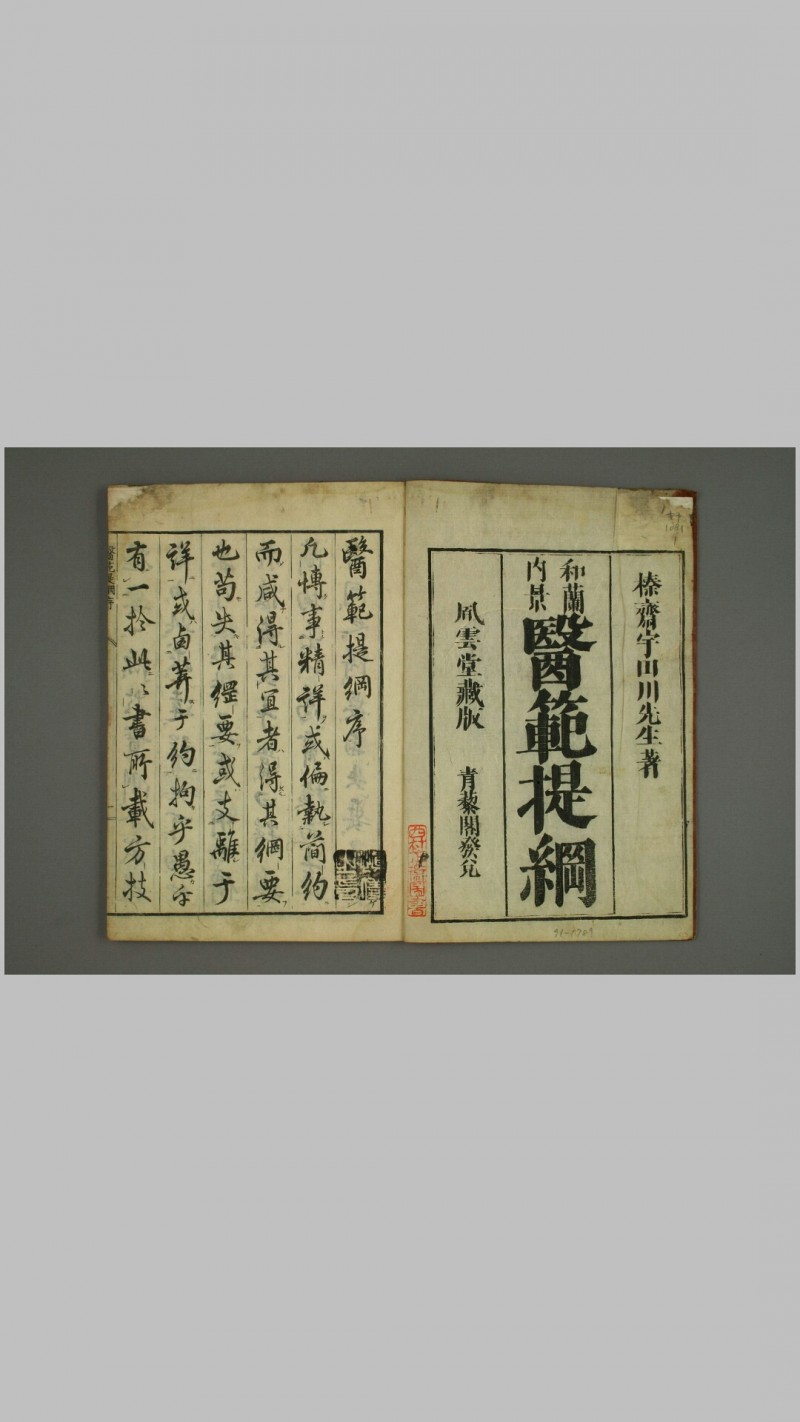 榛齋宇田川先生著
和蘭
內景
醫範提綱
風雲堂藏版
青藜閣發兌
醫範提綱序
凡愽事精詳或偏執簡約
而咸得其宜者得其綱要
也苟失其綱要或支離于
詳或鹵莽于約拘乎愚乎
有一於此書所載方技